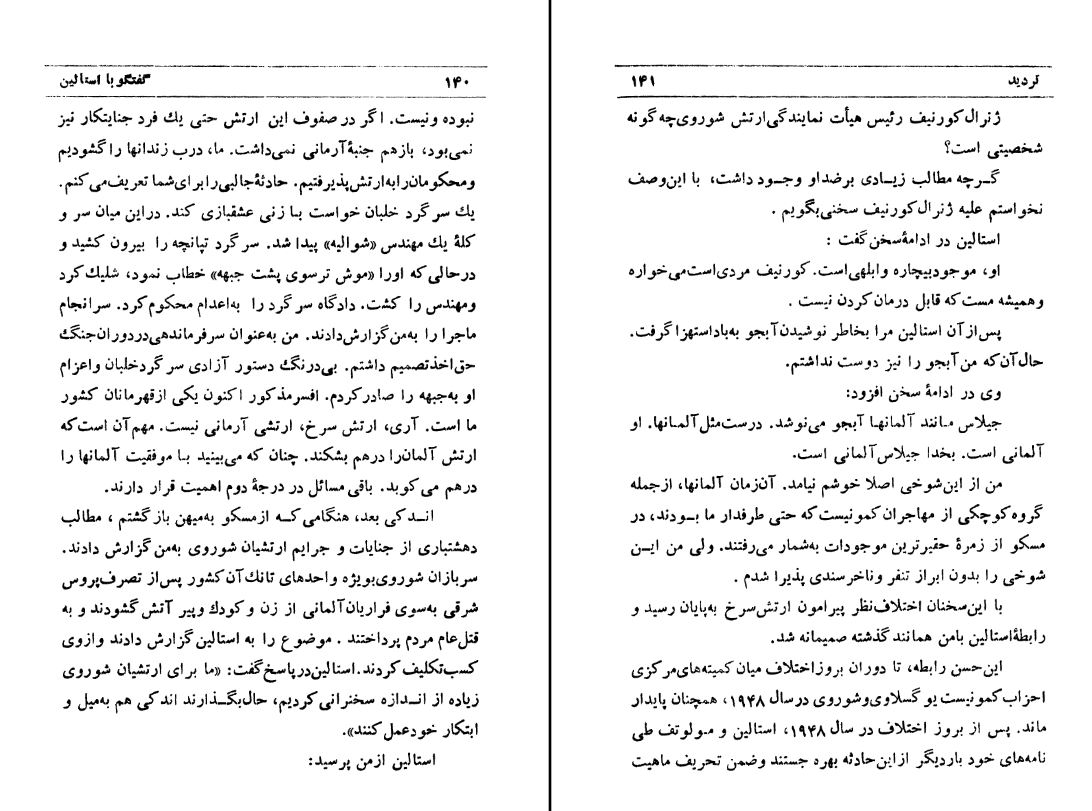 ۱۴۰ گفتگو با استالین
نبوده ونیست. اگر در صفوف این ارتش حتی یك فرد جنایتکار نیز
نمی‌بود، بازهم جنبهٔ آرمانی نمی‌داشت. ما، درب زندانها را گشودیم
ومحکومان را به ارتش پذیرفتیم. حادثهٔ جالبی را برای شما تعریف می‌کنم.
یك سرگرد خلبان خواست بـا زنی عشقبازی کند. دراین میان سر و
کلهٔ یك مهندس «شوالیه» پیدا شد. سرگرد تپانچه را بیرون کشید و
درحالی که اورا «موش ترسوی پشت جبهه» خطاب نمود، شلیك کرد
ومهندس را کشت. دادگاه سرگرد را به‌اعدام محکوم کرد. سرانجام
ماجرا را به‌من گزارش دادند. من به‌عنوان سرفرماندهی دردوران جنگ
حق اخذ تصمیم داشتم. بی‌درنگ دستور آزادی سرگرد خلبان واعزام
او به‌جبهه را صادر کردم. افسر مذکور اکنون یکی از قهرمانان کشور
ما است. آری، ارتش سرخ، ارتشی آرمانی نیست. مهم آن است که
ارتش آلمان را درهم بشکند. چنان که می‌بینید بـا موفقیت آلمانها را
درهم می‌کوبد. باقی مسائل در درجهٔ دوم اهمیت قرار دارند.
انـدکی بعد، هنگامی‌کـه ازمسکو به‌میهن بازگشتم ، مطالب
دهشتباری از جنایات و جرایم ارتشیان شوروی به‌من گزارش دادند.
سربازان شوروی بویژه واحدهای تانك آن کشور پس‌از تصرف پروس
شرقی به‌سوی فراریان آلمانی از زن و کودك وپیر آتش گشودند و به
قتل‌عام مردم پرداختند . موضوع را به استالین گزارش دادند وازوی
کسب تکلیف کردند. استالین درپاسخ گفت: «ما برای ارتشیان شوروی
زیاده از انـدازه سخنرانی کردیم، حال بگـذارند اندکی هم به‌میل و
ابتکار خود عمل کنند».
استالین ازمن پرسید:
تردید ۱۴۱
ژنرال کورنیف رئیس هیأت نمایندگی ارتش شوروی چه گونه
شخصیتی است؟
گـرچه مطالب زیـادی برضد او وجـود داشت، با این‌وصف
نخواستم علیه ژنرال کورنیف سخنی بگویم .
استالین در ادامهٔ سخن گفت :
او، موجود بیچاره وابلهی است. کورنیف مردی است می‌خواره
وهمیشه مست که قابل درمان کردن نیست .
پس‌از آن استالین مرا بخاطر نوشیدن آبجو به‌باد استهزا گرفت.
حال آن که من آبجو را نیز دوست نداشتم.
وی در ادامهٔ سخن افزود:
جیلاس مـانند آلمانهـا آبجو می‌نوشد. درست مثل آلمـانها. او
آلمانی است. بخدا جیلاس آلمانی است.
من از این شوخی اصلا خوشم نیامد. آن‌زمان آلمانها، ازجمله
گروه کوچکی از مهاجران کمونیست که حتی طرفدار ما بـودند، در
مسکو از زمرهٔ حقیرترین موجودات به‌شمار می‌رفتند. ولی من ایـن
شوخی را بدون ابراز تنفر وناخرسندی پذیرا شدم .
با این‌سخنان اختلاف‌نظر پیرامون ارتش‌سرخ به‌پایان رسید و
رابطهٔ استالین بامن همانند گذشته صمیمانه شد.
این‌حسن رابطه، تا دوران بروز اختلاف میان کمیته‌های مرکزی
احزاب کمونیست یوگسلاوی وشوروی درسال ۱۹۴۸، همچنان پایدار
ماند. پس از بروز اختلاف در سال ۱۹۴۸، استالین و مـولوتف طی
نامه‌های خود باردیگر از این‌حادثه بهره جستند وضمن تحریف ماهیت